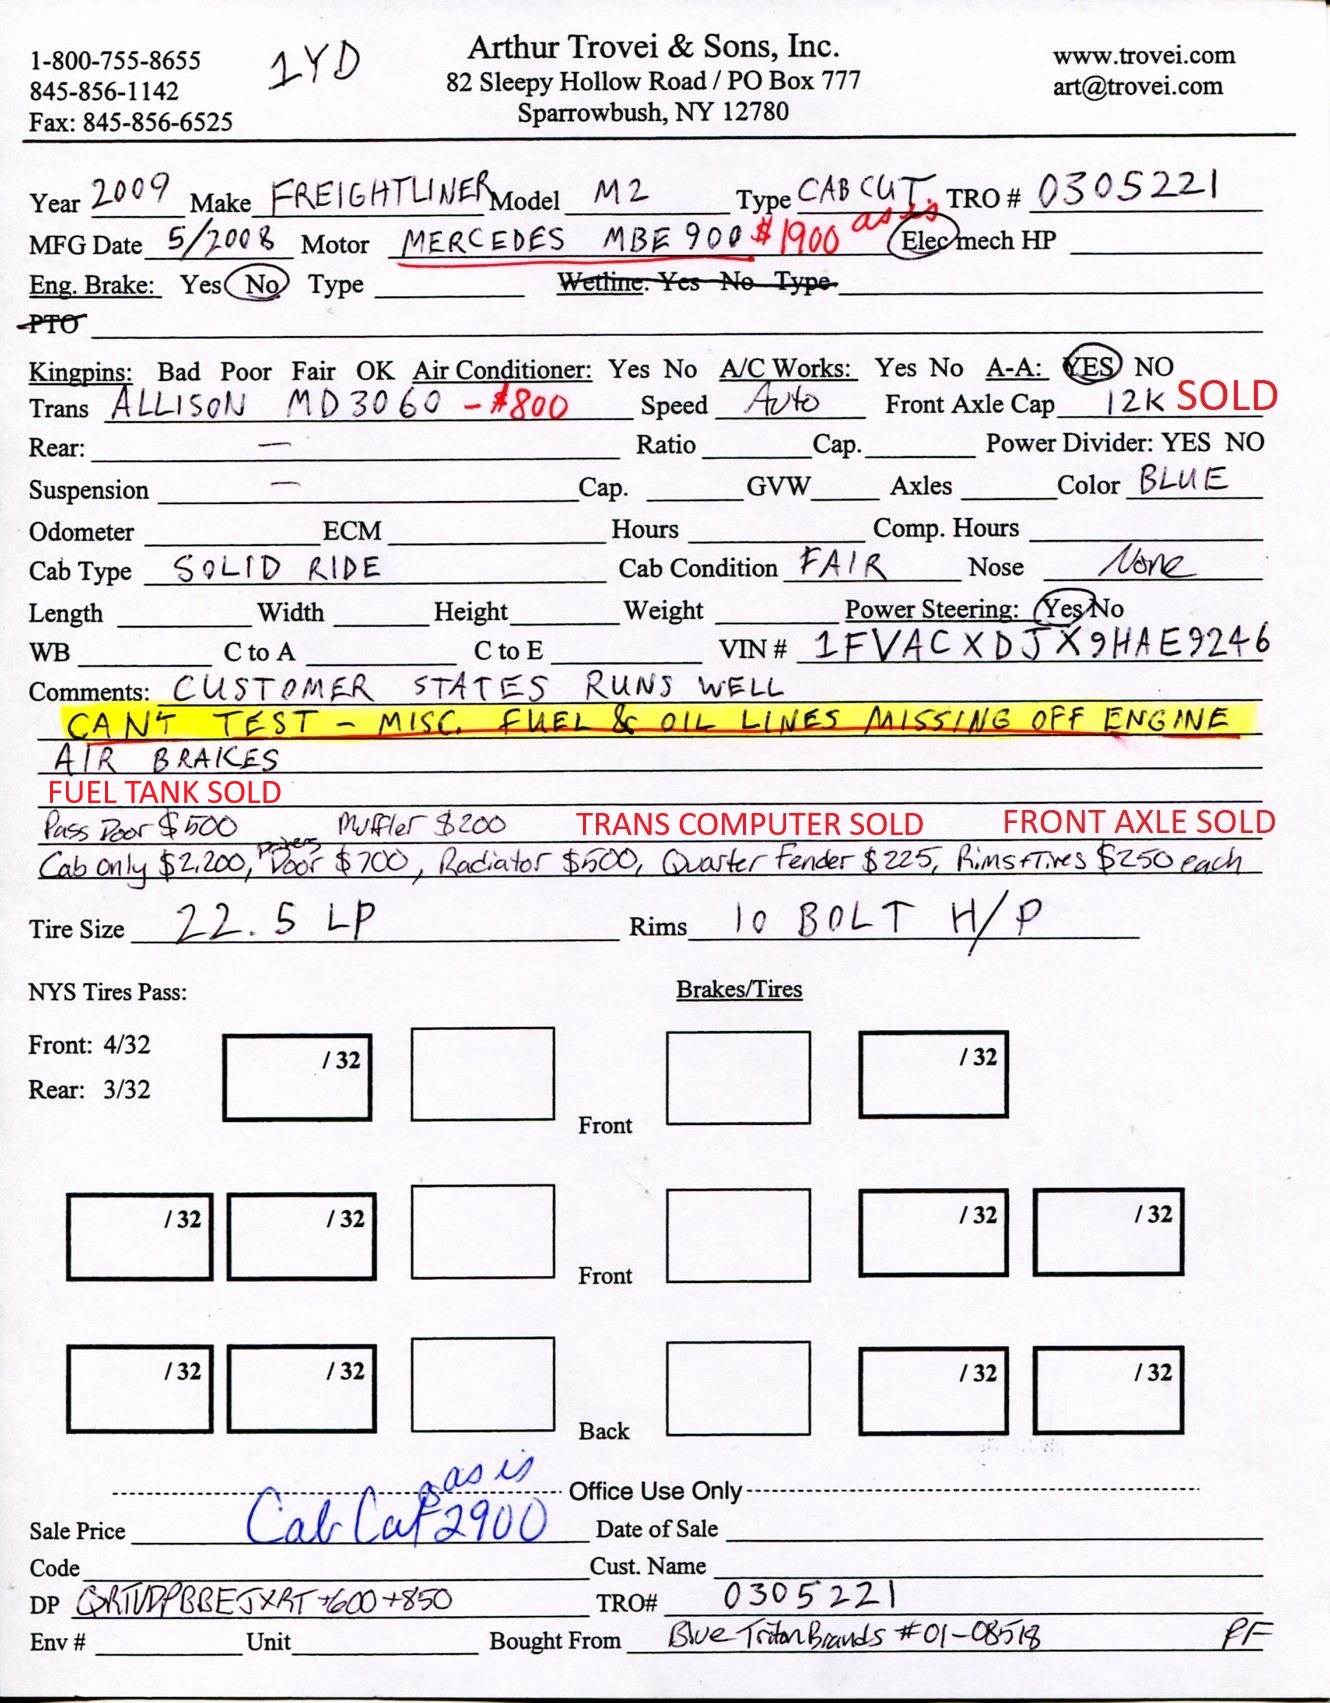 1-800-755-8655
845-856-1142
Fax: 845-856-6525
1YD
Arthur Trovei & Sons, Inc.
82 Sleepy Hollow Road / PO Box 777
Sparrowbush, NY 12780
www.trovei.com
art@trovei.com
Year 2009 Make FREIGHTLINER Model M2 Type CAB CUT TRO # 0305221
MFG Date 5/2008 Motor MERCEDES MBE 900 $1900 as is Elec mech HP
Eng. Brake: Yes No Type Wetline: Yes No Type
PTO
Kingpins: Bad Poor Fair OK Air Conditioner: Yes No A/C Works: Yes No A-A: YES NO
Trans ALLISON MD3060 - $800 Speed Auto Front Axle Cap 12K SOLD
Rear: — Ratio Cap. Power Divider: YES NO
Suspension — Cap. GVW Axles Color BLUE
Odometer ECM Hours Comp. Hours
Cab Type SOLID RIDE Cab Condition FAIR Nose None
Length Width Height Weight Power Steering: Yes No
WB C to A C to E VIN # 1FVACXDJX9HAE9246
Comments: CUSTOMER STATES RUNS WELL
CAN'T TEST - MISC. FUEL & OIL LINES MISSING OFF ENGINE
AIR BRAKES
FUEL TANK SOLD
Pass Door $500 Muffler $200 TRANS COMPUTER SOLD FRONT AXLE SOLD
Cab only $2,200, Door $700, Radiator $500, Quarter Fender $225, Rims+Tires $250 each
Tire Size 22.5 LP Rims 10 BOLT H/P
NYS Tires Pass: Brakes/Tires
Front: 4/32
Rear: 3/32
/ 32 / 32
Front
/ 32 / 32 / 32 / 32
Front
/ 32 / 32 / 32 / 32
Back
Office Use Only
Sale Price Cab Cut $2900 as is Date of Sale
Code Cust. Name
DP +600+850 TRO# 0305221
Env # Unit Bought From Blue Triton Brands #01-08518 PF